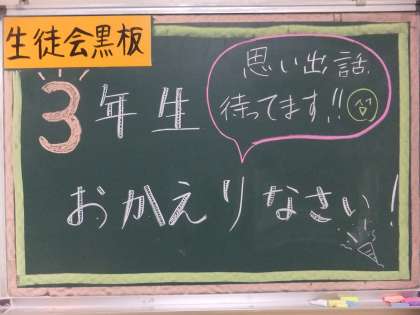 生徒会黒板
3年生
思い出話
待ってます!!
おかえりなさい!